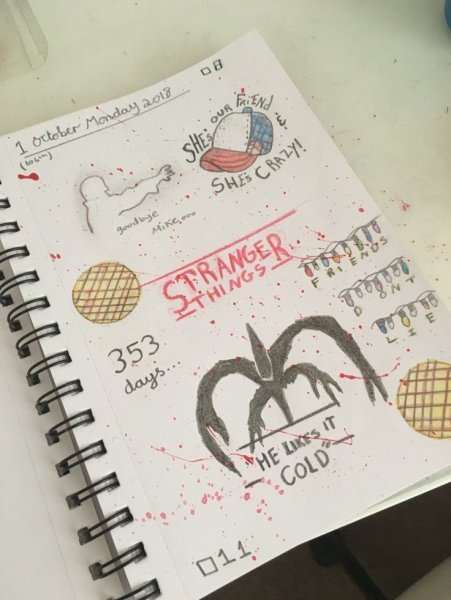 □8
1 October Monday 2018
SHE'S OUR FRIEND &
SHE'S CRAZY!
goodbye
Mike...
STRANGER
THINGS
FRIENDS
DONT
LIE
353
days...
"HE LIKES IT
COLD"
□11